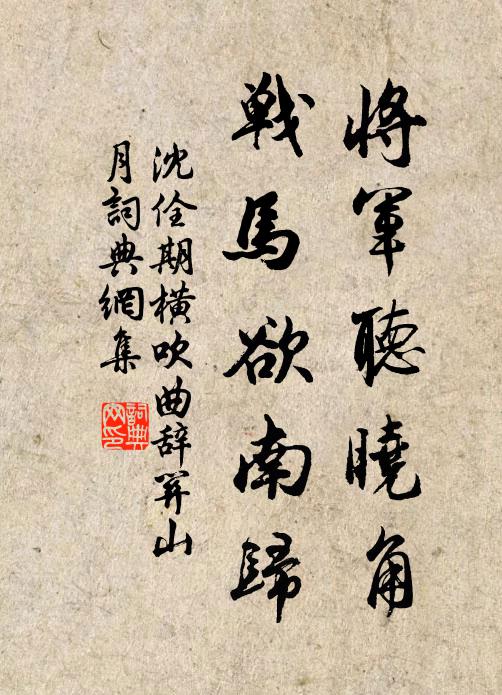 將軍聽曉角
戰馬欲南歸
沈佺期橫吹曲辭關山
月詞典網集
詞典
网印